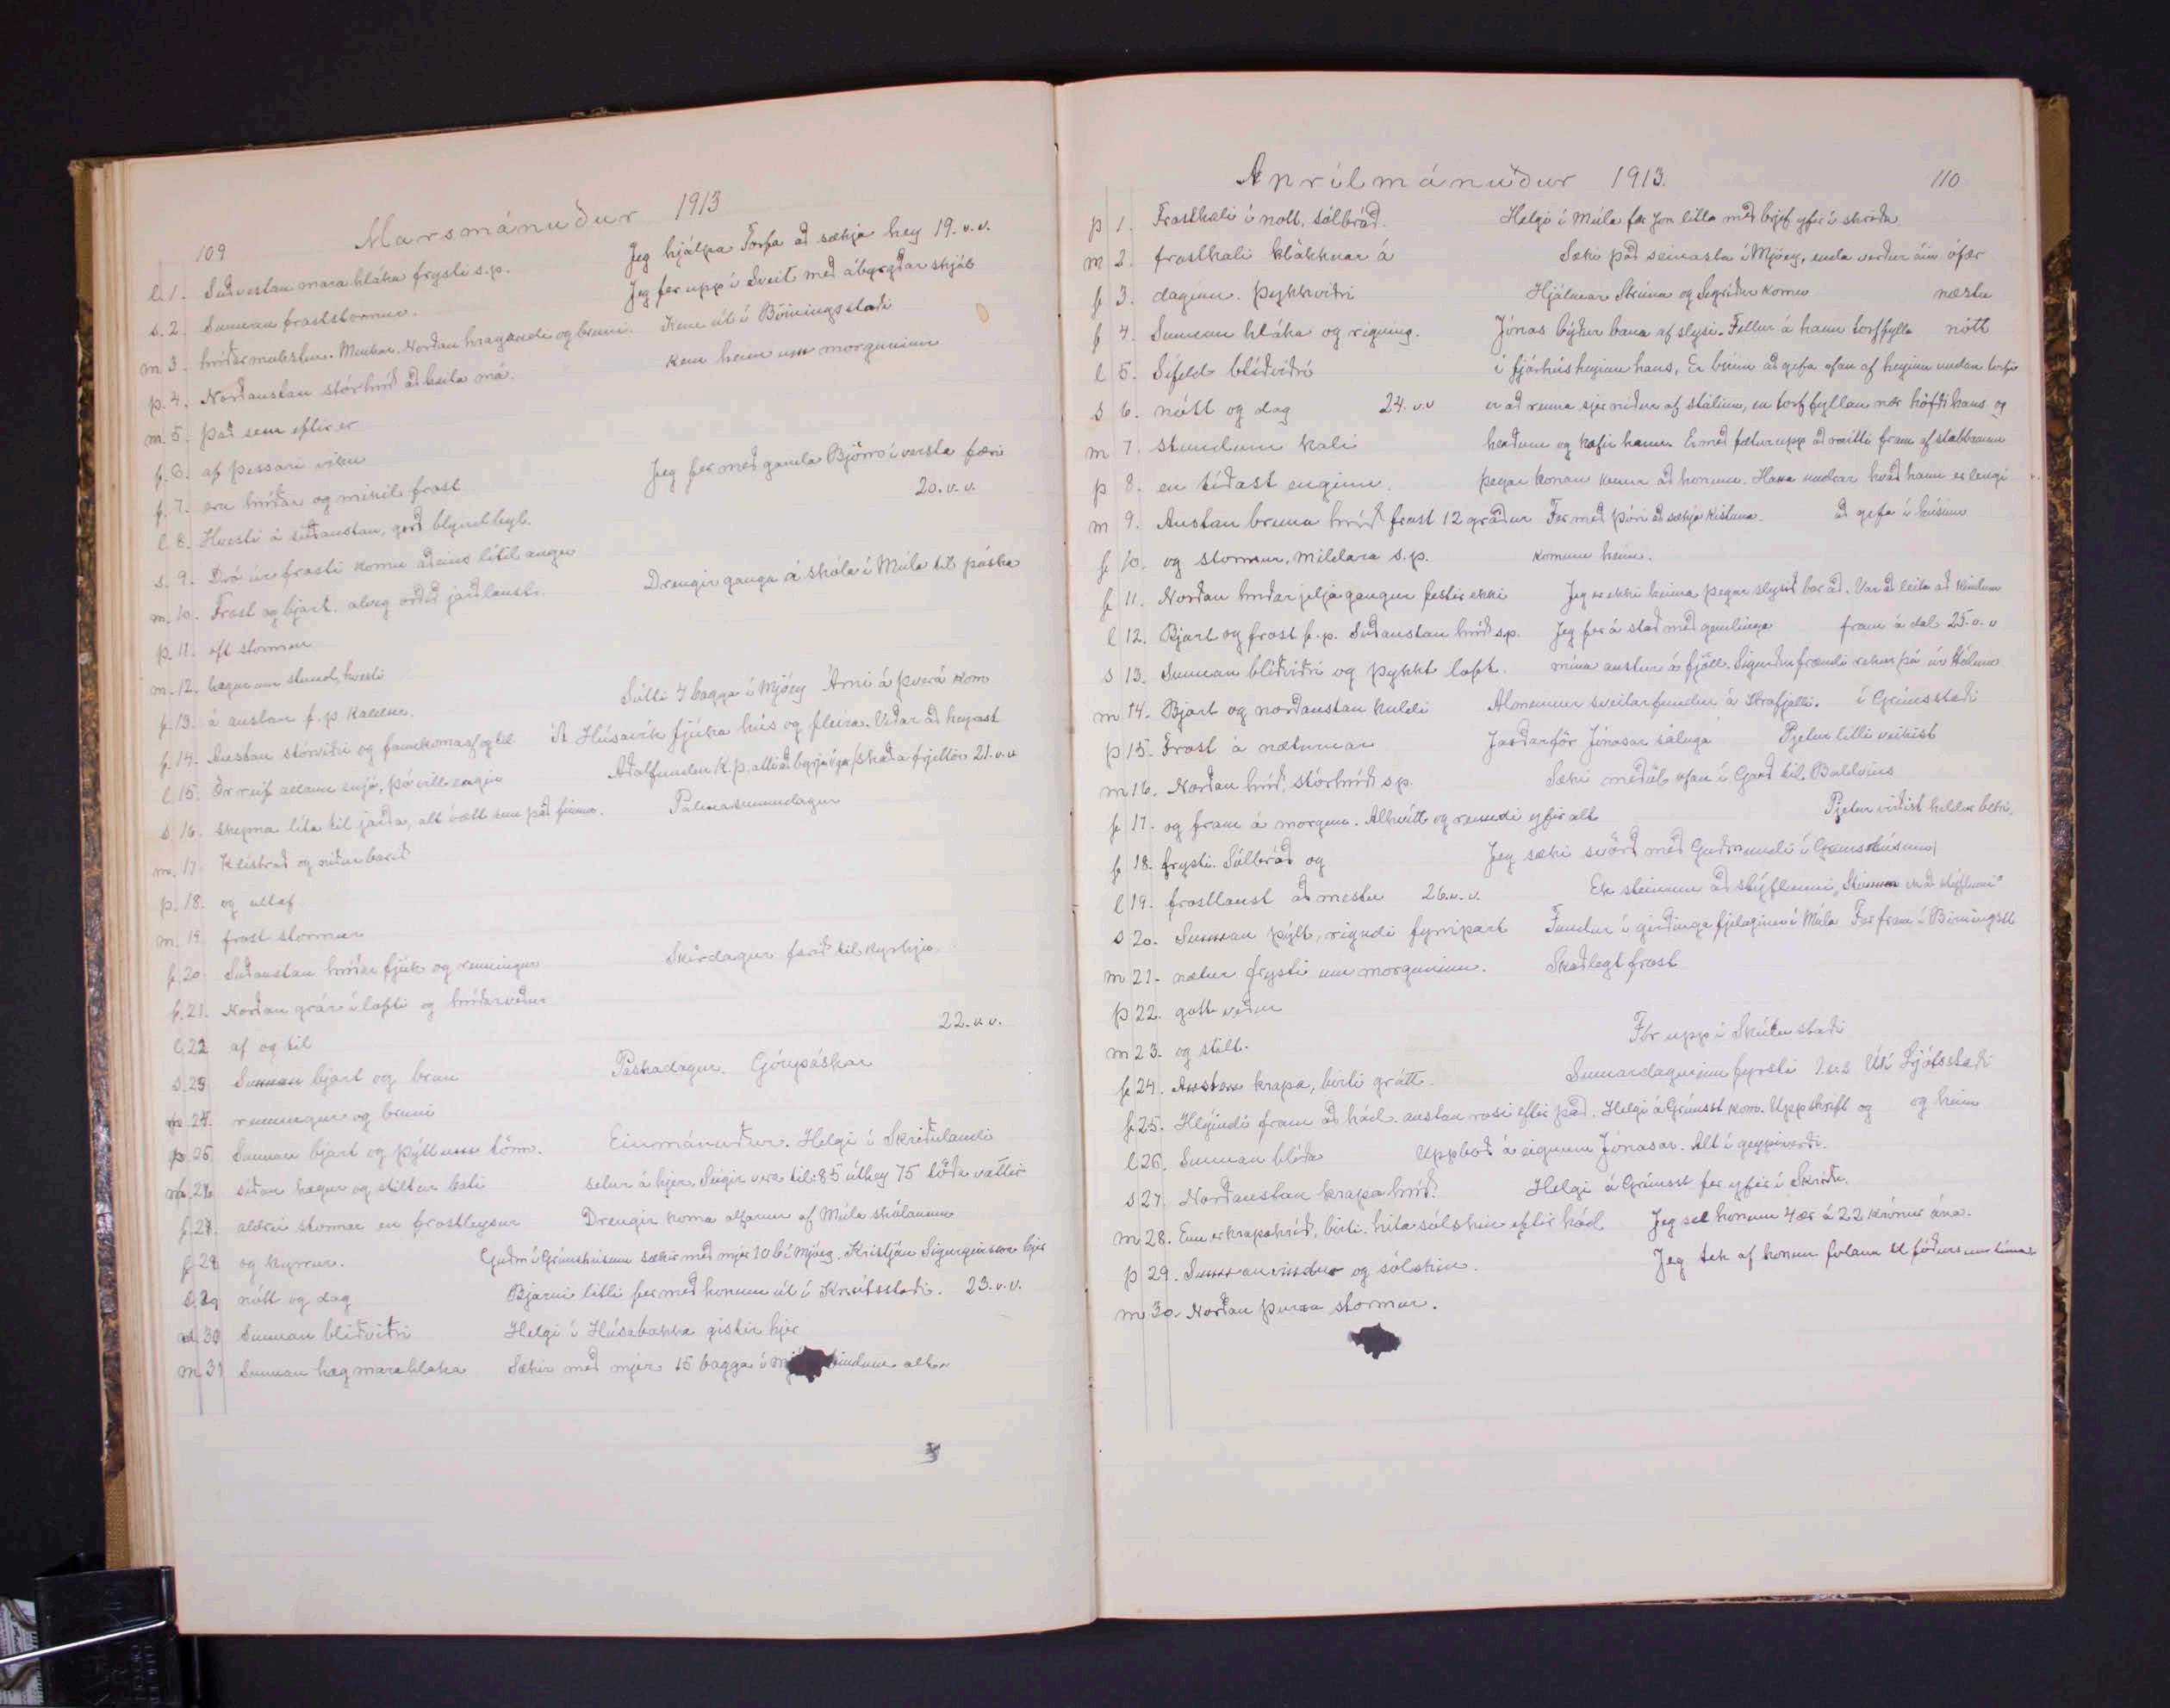 109
Marsmánuður 1913
l. 1. Suðvestan marahláka frysti s.p. Jeg hjálpa Torfa að sækja hey 19.v.v.
s. 2. Sunnan froststormur. Jeg fer upp í Sveit með ábyrgðarskjöl
m 3. hríðarmulostur. Norðan hragandi og bruni. Kem út í Brúningsstaði
þ. 4. Norðaustan stórhríð að heita má. kem heim um morguninn
m. 5. það sem eftir er
f. 6. af þessari viku
f. 7. eru hríðar og mikil frost Jeg fer með gamla Björn í versta færi
l. 8. Hvesti á suðaustan, gerð blyndbyl. 20.v.v.
s. 9. Dró úr frosti komu aðeins lítil
m. 10. Frost og bjart. alveg orðið jarðlaust. Drengir ganga á skóla í Múla til páska
þ. 11. oft stormur
m. 12. hægur um stund, hvesti
f. 13. á austan f.p kaldur. Sótti 4 bagga í Mjóey Árni á Þverá kom
f. 14. Austan stórviðri og fannkoma og til Á Húsavík fjúka hús og fleira. Víðar að heyrast
l. 15. Ör reif allann snjó, þó vill engin Aðalfundur K.þ. skaða frjettir 21.v.v
s. 16. skepna líta til jarða, alt vælt sem það finnur. Pálmasunnudagur
m. 17. Kleistrað og niður barið
þ. 18. og altaf
m. 19 frost stormur
f. 20 Suðaustan hríðar fjúk og renningur Skírdagur farið til kyrkju
f. 21. Norðan grár í lofti og hríðarveður
l. 22 af og til 22.v.v.
s. 23 Sunnan bjart og brun Páskadagur. Góupáskar
24. renningur og bruni
þ. 25. Sunnan bjart og þýtt um törn. Einmánuður. Helgi í Skriðulandi
26 síðan hægur og stiltur bati setur á hjer. Segir vera til: 85 úthey 75 töðu vættir
f. 27. aldrei stormar en frostleysur Drengir koma alfarnir af Múla skólanum
f 28 og kyrrur. Guðm í Grímshúsum sækir með mjer 10 b í Mjóey. Kristján Sigurgeirsson hjer
l. 29 nótt og dag Bjarni litli fer með honum út í Knútsstaði. 23.v.v.
30 Sunnan blíðviðri Helgi í Húsabakka gistir hjer
m 31 Sunnan hæg marahláka Sækir með mjer 15 bagga í

Aprílmánuður 1913. 110
þ 1. Frostkali í nótt, sólbráð. Helgi í Múla fær Jón litla með brjef yfir í skriðu
m 2. frostkali klökknar á Sæki það seinasta í Mjóey, enda verður áin ófær
f 3. daginn. Þykkviðri Hjálmar Stína og Sigríður komu næstu
f 4. Sunnan hláka og rigning. Jónas býður bana af slysi. Fellur á hann torffylla nótt
l 5. Sífeld blíðviðri í fjárhúsheyinu hans, Er búinn að gefa ofan af heyinu undan torfi
s 6. nótt og dag 24.v.v er að renna sjer niður af stálinu, en torffyllan nær höfði hans og
m 7. stundum kali herðum og kæfir hann. Er með fætur upp að miðti fram af stabbanum
þ 8. en tíðast enginn. þegar konan kemur að honum. Hana undrar hvað hann er lengi
m 9. Austan bruna hríð frost 12 gráður Fer með Þóri að sækja kistuna. að gefa í húsinu
f 10. og stormur, mildara s.p. komum heim.
f 11. Norðan hríðarjeljagangur festir ekki Jeg er ekki heima þegar slysið bar að. Var að leita að kindum
l 12. Bjart og frost f.p. Suðaustan hríð s.p. Jeg fer á stað með gemlinga fram á dal 25.v.v
s 13. Sunnan blíðviðri og þykkt loft. mína austur á fjöll. Sigurður frændi rekur þá úr Hólum
m 14. Bjart og norðaustan kuldi Almennur sveitarfundur á Hrafjalli. í Grímsstaði
þ 15. Frost á næturnar Jarðarför Jónasar sáluga Pjetur litli veikist
m 16. Norðan hríð, stórhríð s.p. Sæki meðöl ofan í Garð til Baldvins
f 17. og fram á morgun. Alhvítt og rendi yfir alt Pjetur virðist heldur betri.
f 18. frysti. Sólbráð og Jeg sæki svörð með Guðmundi í Grímshúsum
l 19. frostlaust að mestu 26.v.v. Ek steinum að stýflunni,
s 20. Sunnan þýtt, rigndi fyrripart Fundur í girðinga fjelaginu í Múla Fer fram í Brúningsst
m 21. nætur frysti um morguninn. Skaðlegt frost
þ 22. gott veður
m 23. og stilt. Fór upp í Skútustaði
f 24. Austan krapa, birti grátt. Sumardagurinn fyrsti 1.v.s Út í Ljótsstaði
f 25. Hlýindi fram að hád. austan rosi eftir það. Helgi á Grímsst kom. Uppskrift og og heim
l 26. Sunnan blíða Uppboð á eignum Jónasar. Alt í geypiverði.
s 27. Norðaustan krapa hríð. Helgi á Grímsst fer yfir í Skriðu.
m 28. Enn er krapahríð, birti. hita sólskin eftir hád Jeg sel honum 4 ær á 22 krónur ána.
þ 29. Sunnanvindur og sólskin. Jeg tek af honum folana til fóðurs um tíma
m 30. Norðan þurra stormur.